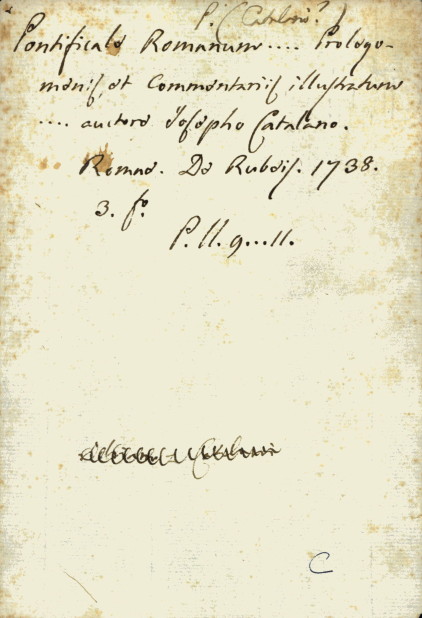 P. (Catalani?)
Pontificale Romanum .... Prolego-
menis, et Commentariis illustratum
.... auctore Josepho Catalano.
Romae. De Rubeis. 1738.
3. fo.
P. II. 9...11.
Catalani
C